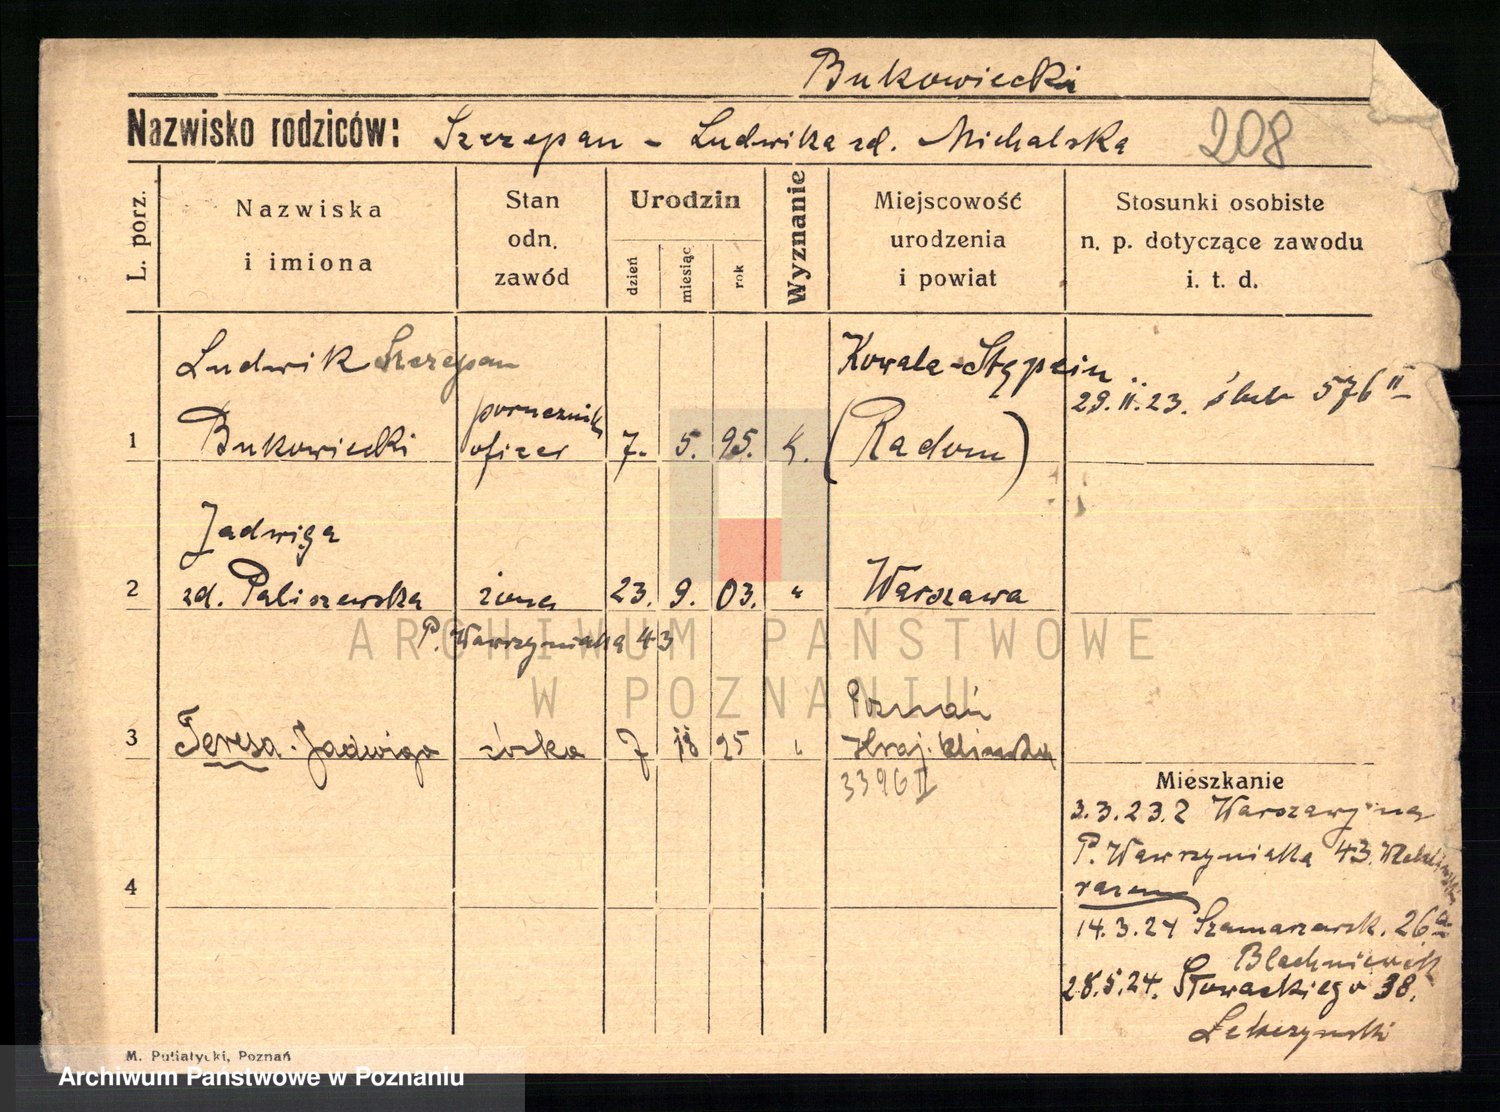 Bukowiecki
Nazwisko rodziców: Szczepan - Ludwika zd. Michalska 208
L. porz.
Nazwiska
i imiona
Stan
odn.
zawód
Urodzin
dzień
miesiąc
rok
Wyznanie
Miejscowość
urodzenia
i powiat
Stosunki osobiste
n. p. dotyczące zawodu
i. t. d.
Ludwik Szczepan
1 Bukowiecki
porucznik
oficer
7. 5. 95. k.
Kowala-Stępcin
(Radom)
29.II.23. ślub 576 II
Jadwiga
2 zd. Paliszewska żona 23. 9. 03. " Warszawa
P. Wawrzyniaka 43
3 Teresa Jadwiga córka 7 25 "
Poznań
3396 II
4
Mieszkanie
3.3.23. z Warszawy na
P. Wawrzyniaka 43.
razem
14.3.24 Szamarzewsk. 26a
28.5.24. Słowackiego 38.
M. Putiatycki, Poznań
ARCHIWUM PAŃSTWOWE
W POZNANIU
Archiwum Państwowe w Poznaniu